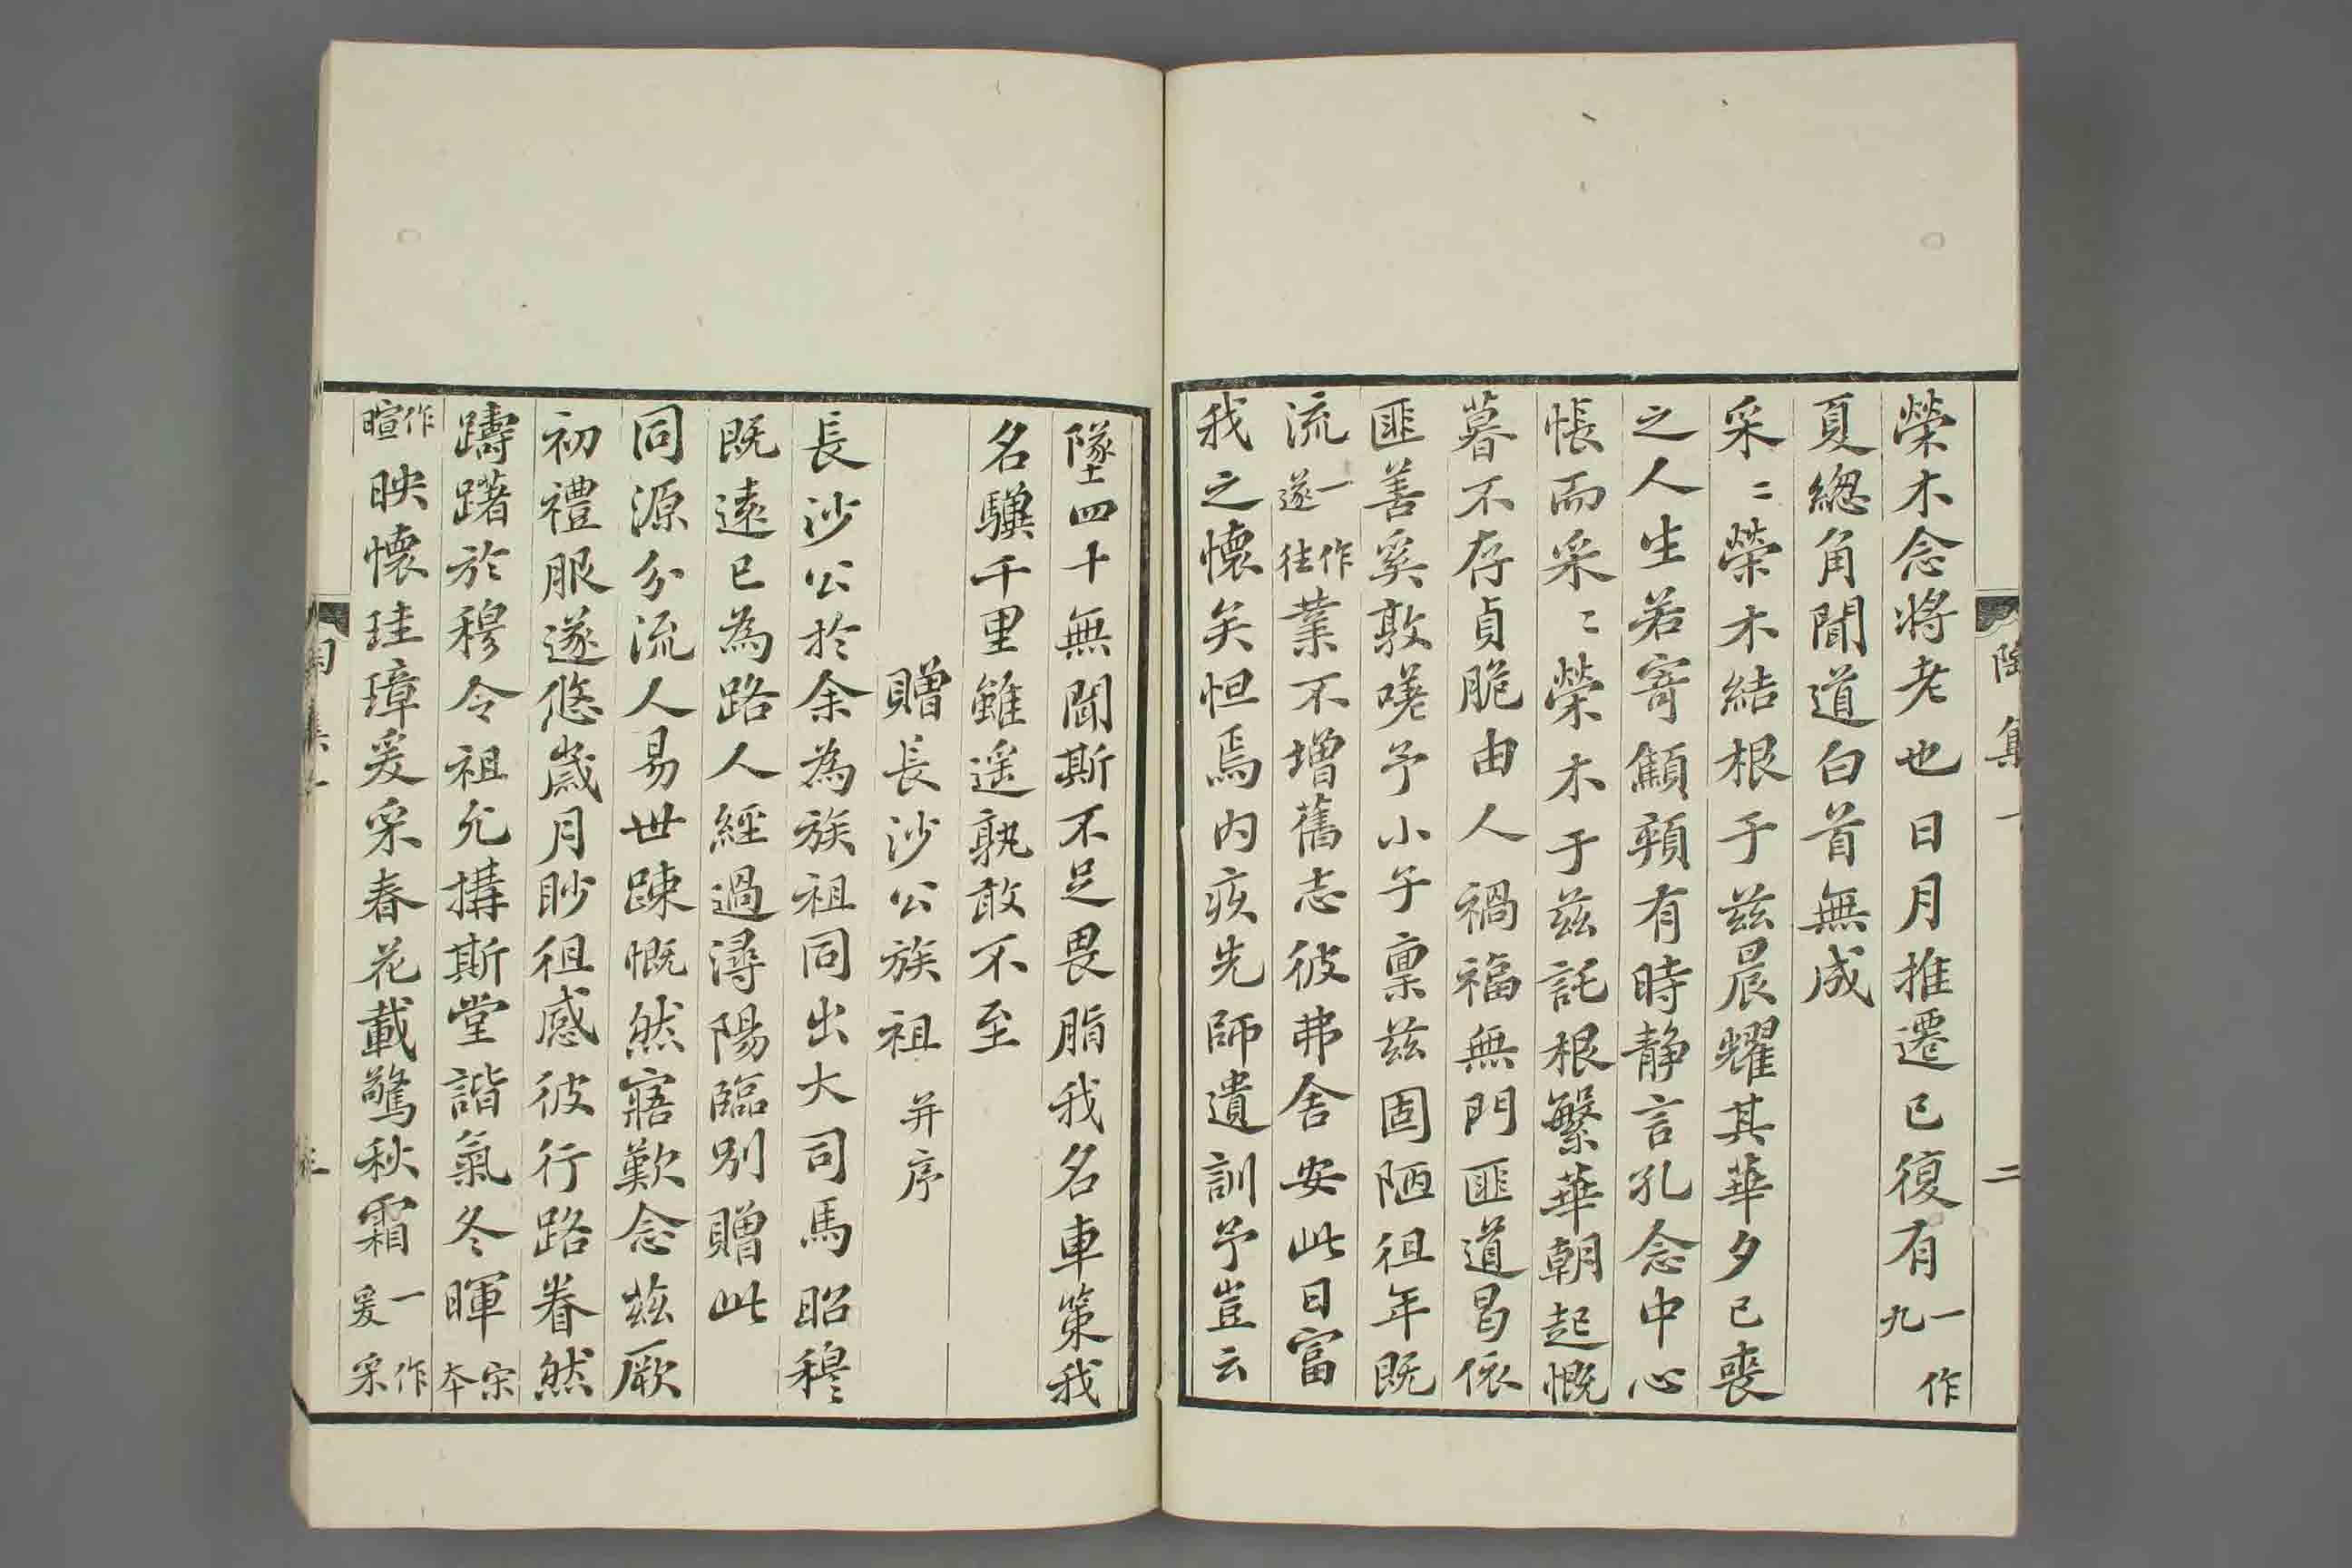 陶集一 二
榮木念將老也日月推遷已復有一作九
夏緫角聞道白首無成
采〻榮木結根于兹晨耀其華夕已喪
之人生若寄顦顇有時静言孔念中心
悵而采〻榮木于兹託根繁華朝起慨
暮不存貞脆由人禍福無門匪道曷依
匪善奚敦嗟予小子禀兹固陋徂年既
流一作遂往業不增舊志彼弗舍安此日富
我之懷矣怛焉内疚先師遺訓予豈云
墜四十無聞斯不足畏脂我名車策我
名驥千里雖遥孰敢不至
贈長沙公族祖并序
長沙公於余為族祖同出大司馬昭穆
既遠已為路人經過潯陽臨別贈此
同源分流人易世踈慨然寤歎念兹厥
初禮服遂悠歲月眇徂感彼行路眷然
躊躇於穆令祖允搆斯堂諧氣冬暉宋本
作暄映懷珪璋爰采春花載驚秋霜一作爰采